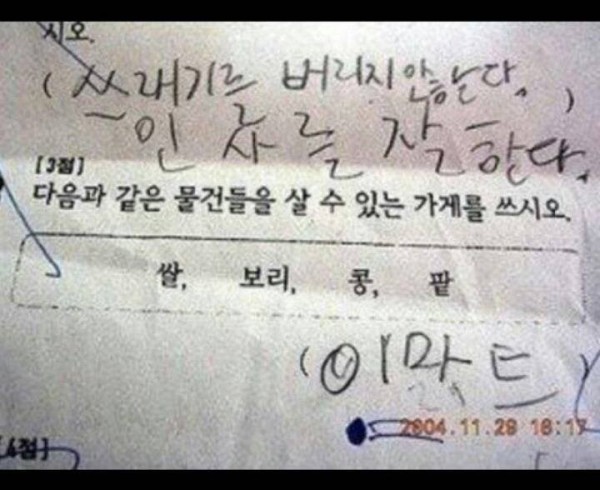 시오.
(쓰래기르 버리지안는다.)
인사를 잘한다.
[3점]
다음과 같은 물건들을 살 수 있는 가게를 쓰시오.
쌀, 보리, 콩, 팥
(이마트)
2004.11.28 18:17
[4점]